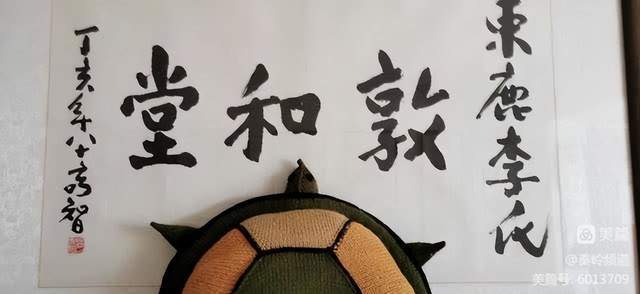 東鹿李氏
敦和堂
丁亥年八十高智
美篇
@秦岭频道
美篇号: 6013709